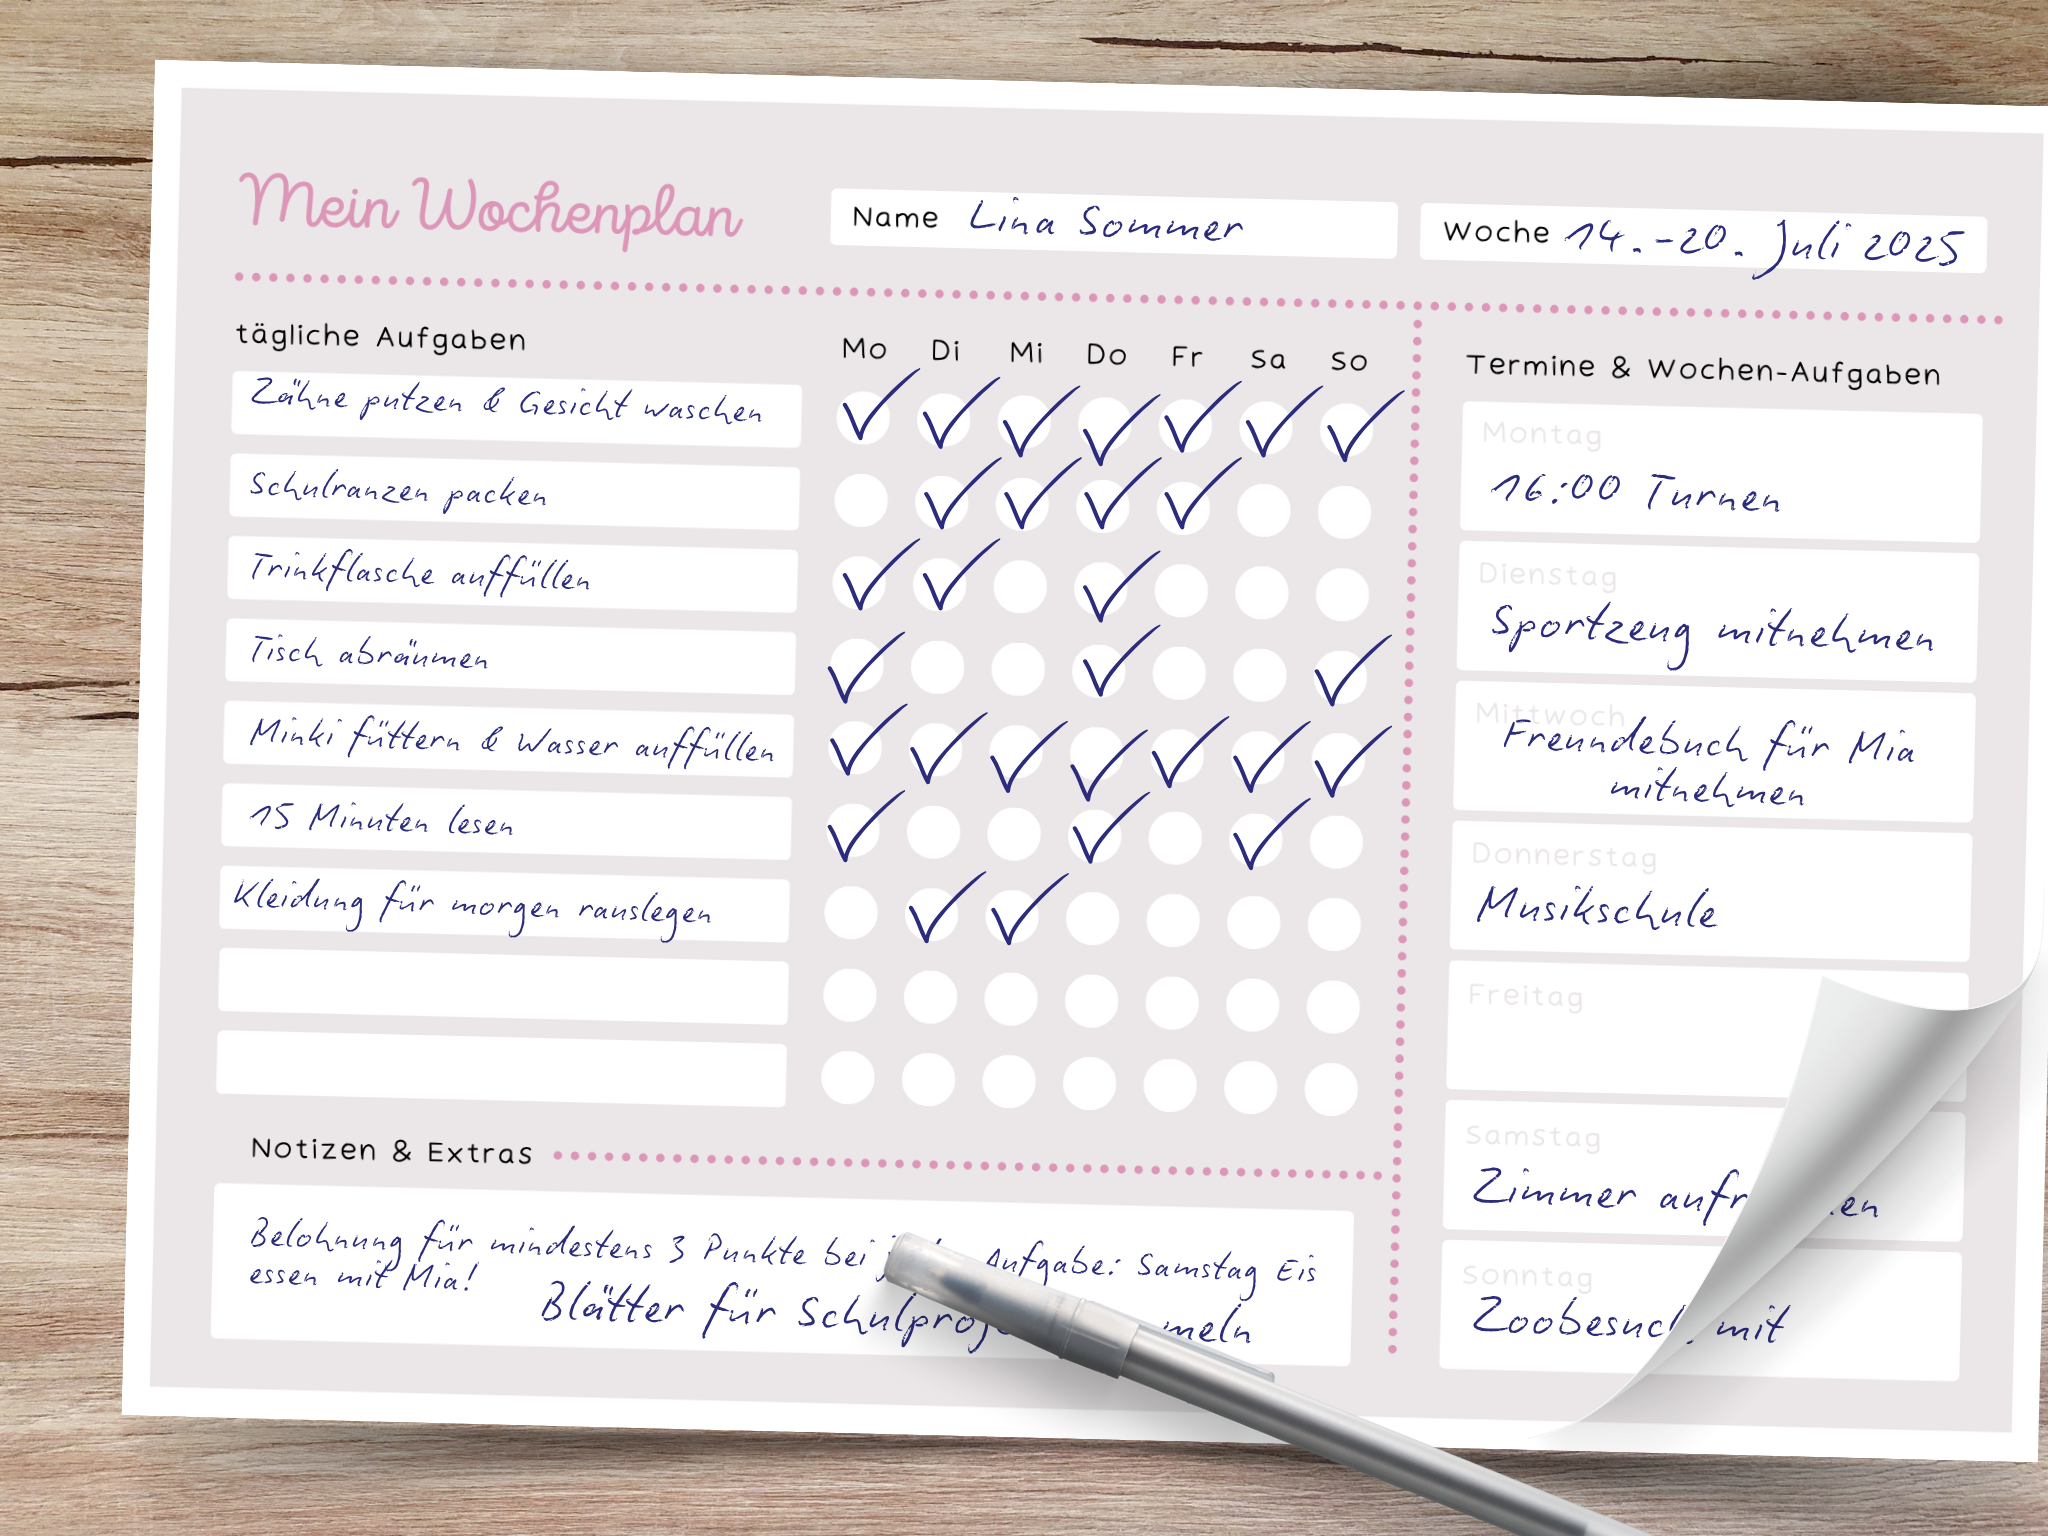 Mein Wochenplan
Name Lina Sommer
Woche 14.-20. Juli 2025
tägliche Aufgaben
Mo Di Mi Do Fr Sa So
Zähne putzen & Gesicht waschen
Schulranzen packen
Trinkflasche auffüllen
Tisch abräumen
Minki füttern & Wasser auffüllen
15 Minuten lesen
Kleidung für morgen rauslegen
Notizen & Extras
Belohnung für mindestens 3 Punkte bei Aufgabe: Samstag Eis
essen mit Mia!
Blätter für
Termine & Wochen-Aufgaben
Montag
16:00 Turnen
Dienstag
Sportzeug mitnehmen
Mittwoch
Freundebuch für Mia
mitnehmen
Donnerstag
Musikschule
Freitag
Samstag
Zimmer
Sonntag
Zoobesuch mit